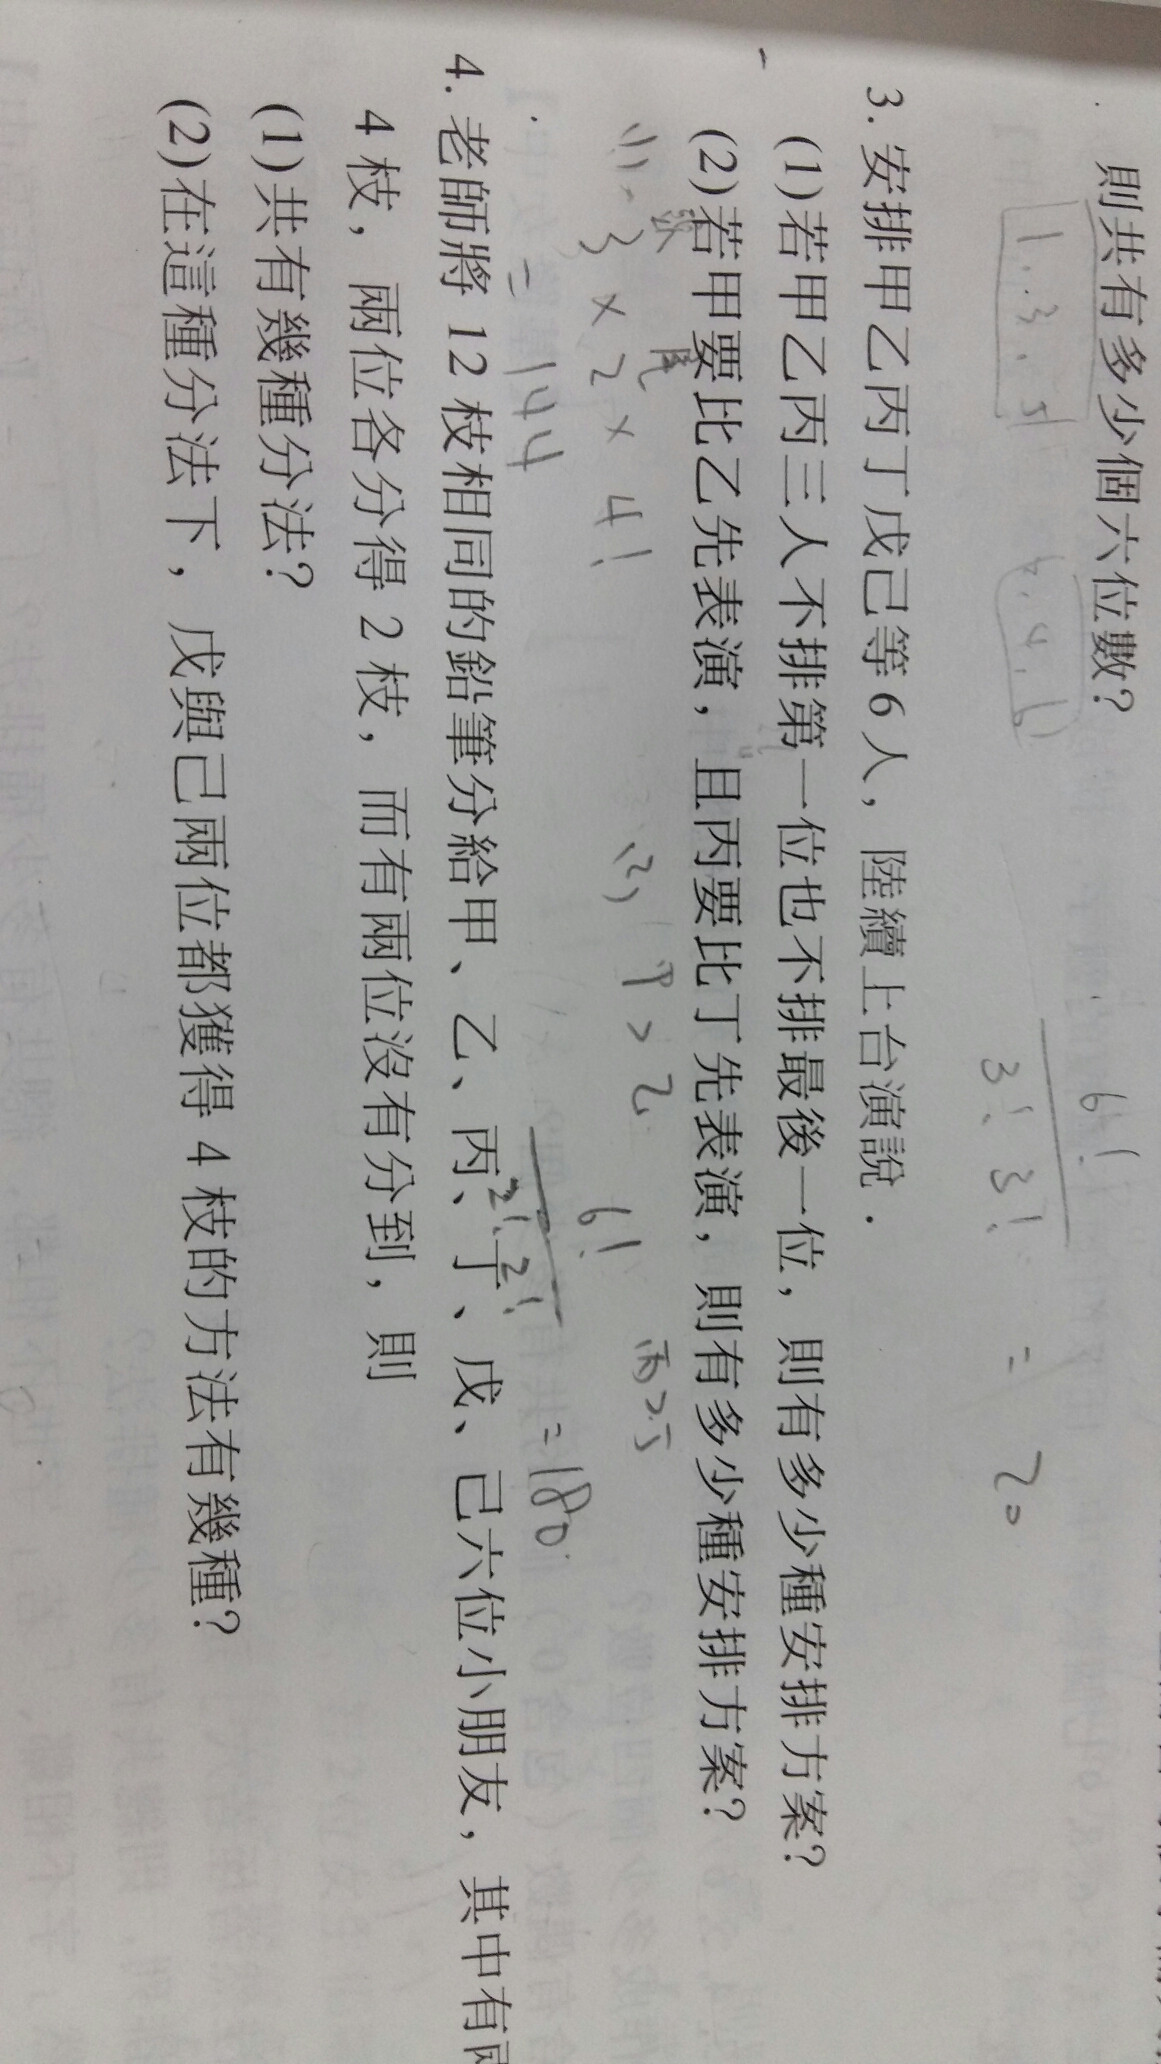 則共有多少個六位數?
1.3.5 2.4.6
6!
3! 3!
= 20
3. 安排甲乙丙丁戊己等6人,陸續上台演說.
(1)若甲乙丙三人不排第一位也不排最後一位,則有多少種安排方案?
(2)若甲要比乙先表演,且丙要比丁先表演,則有多少種安排方案?
頭 尾
(1). 3 × 2 × 4!
= 144
(2) 甲>乙 丙>丁
6!
2! 2!
= 180
4. 老師將12枝相同的鉛筆分給甲、乙、丙、丁、戊、己六位小朋友,其中有兩
4枝,兩位各分得2枝,而有兩位沒有分到,則
(1)共有幾種分法?
(2)在這種分法下,戊與己兩位都獲得4枝的方法有幾種?